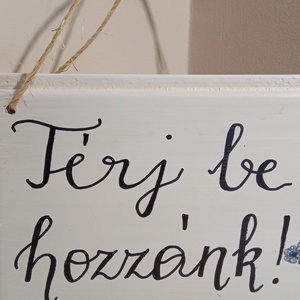 Térj be
hozzánk!